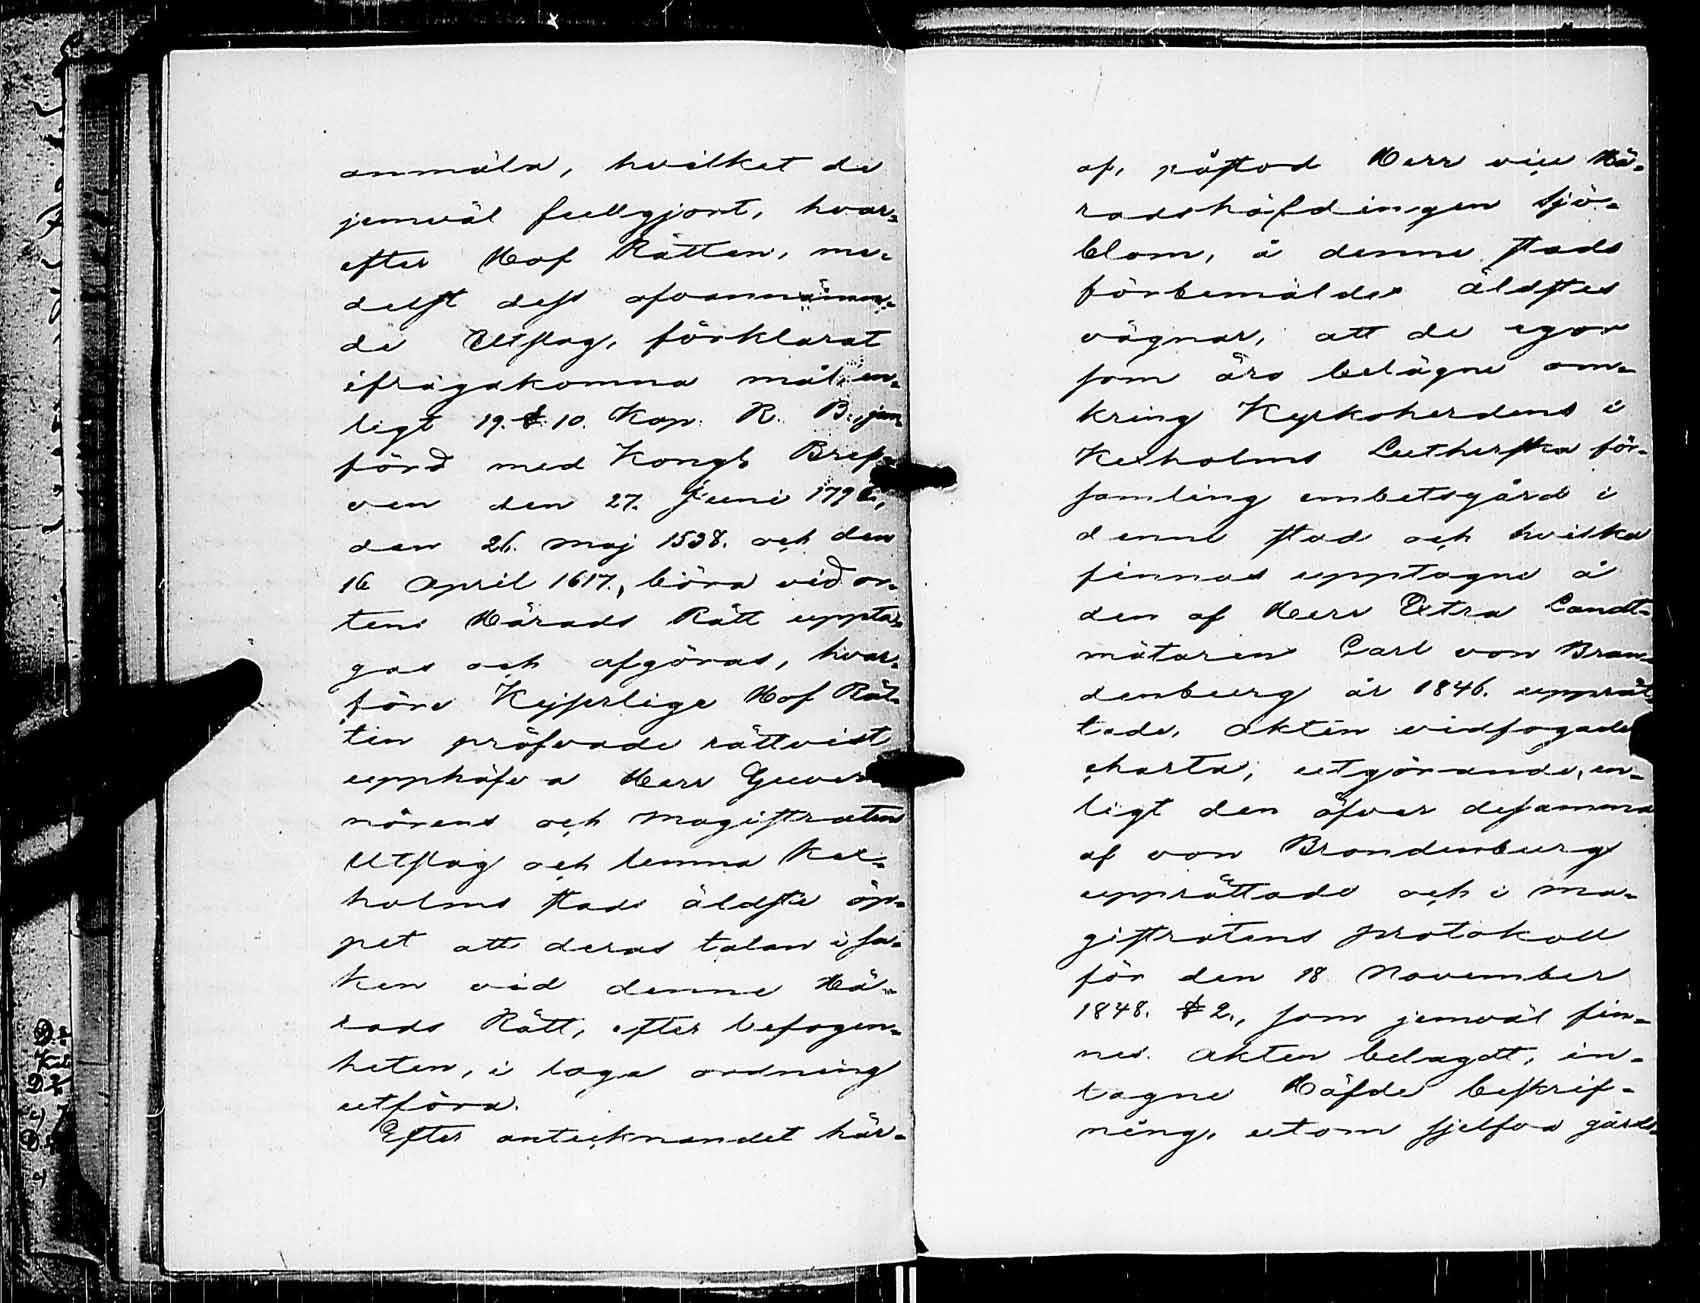 anmäla, hvilket de
jemväl fullgjort, hvar-
efter Hof Rätten, me-
delst dess ofvannämn-
de Utslag, förklarat
ifrågakomna mål, en-
ligt 19. §. 10. Kap. R. B. jem-
förd med Kongl. Bref-
ven den 27. Juni
den 26. Maj 1538. och den
16 April 1617., böra vid or-
tens Härads Rätt uppta-
gas och afgöras, hvar-
före Kejserlige Hof Rät-
ten pröfvade rättvist
upphäfva Herr Guver-
nörens och Magistratens
Utslag och lemna Kex-
holms stads äldste öp-
pet att deras talan i sa-
ken vid denne Hä-
rads Rätt, efter befogen-
heten, i laga ordning
utföra.
Efter antecknandet här-
af, påstod Herr vice Hä-
radshöfdingen Sjö-
blom, å denne stads
förbemälde äldstes
vägnar, att de egor
som äro belägne om-
kring Kyrkoherdens i
Kexholms Lutherska för-
samling embetsgård i
denne stad och hvilka
finnas upptagne å
den af Herr Extra Landt-
mätaren Carl von Bran-
denburg år 1846. upprät-
tade, akten vidfogade
charta, utgörande, en-
ligt den öfver desamma
af von Brandenburg
upprättade och i Ma-
gistratens protokoll
för den 18 November
1848. § 2., som jemväl fin-
nes akten belagdt, in-
tagne Häfde beskrif-
ning, utom sjelfva gårds-